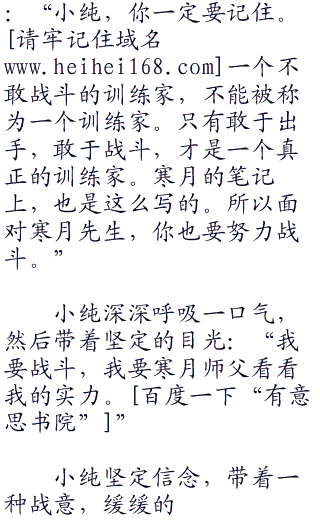 ：“小纯，你一定要记住。
[请牢记住域名
www.heihei168.com]一个不
敢战斗的训练家，不能被称
为一个训练家。只有敢于出
手，敢于战斗，才是一个真
正的训练家。寒月的笔记
上，也是这么写的。所以面
对寒月先生，你也要努力战
斗。”
小纯深深呼吸一口气，
然后带着坚定的目光：“我
要战斗，我要寒月师父看看
我的实力。[百度一下“有意
思书院”]”
小纯坚定信念，带着一
种战意，缓缓的